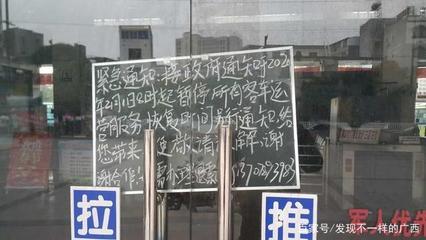 紧急通知:接政府通知于202
年2月1日12时起暂停所有客车运
营服务,恢复时间另行通知,给
您带来 便,敬请 解,谢
谢合作! 需办理退票
拉 推
军人优先
家号/发现不一样的广西